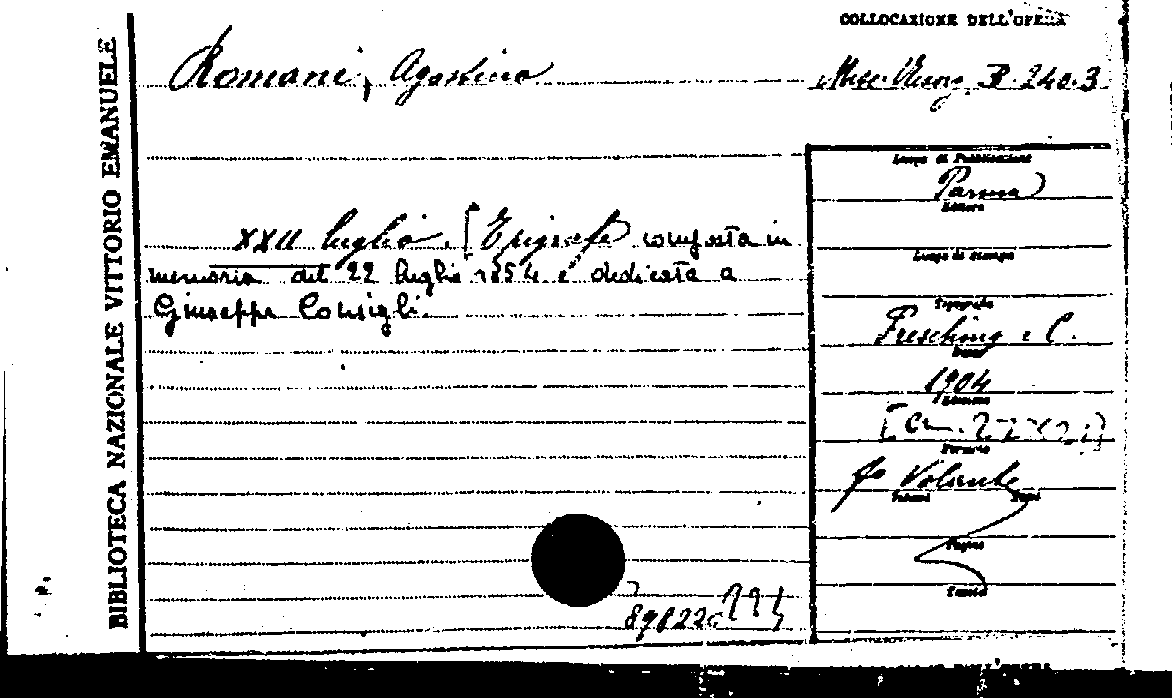 COLLOCAZIONE DELL'OPERA
Romani, Agostino
Misc. Risorg. B. 240.3
BIBLIOTECA NAZIONALE VITTORIO EMANUELE
Luogo di Pubblicazione
Parma
Editore
XXII luglio. [Epigrafe composta in
memoria del 22 luglio 1854 e dedicata a
Giuseppe Consigli.
Luogo di Stampa
Tipografia
Fresching e C.
Data
1904
Edizione
[cm.
Formato
Fo Volante
Volumi Tomi
Pagine
Tavole
898220